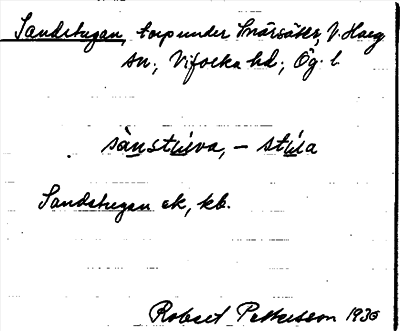 Sandstugan, torp under Snärsäter, V. Harg
sn., Vifolka hd., Ög. l.
sànstùva, – stùa
Sandstugan ek, kb.
Robert Pettersson 1936